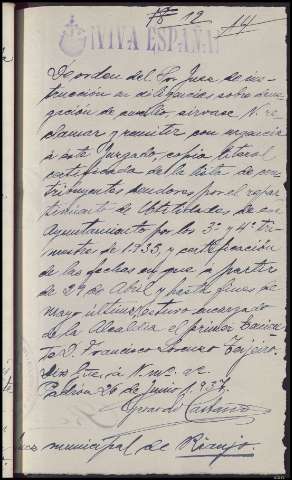 12
14
¡VIVA ESPAÑA!
De orden del Sr Juez de ins-
trucción en diligencias sobre dene-
gación de auxilio, sirvase V. re-
clamar y remitir con urgencia
a este Juzgado, copia literal
certificada de la lista de con-
tribuyentes deudores por el repar-
timiento de Utilidades de ese
Ayuntamiento por los 3º y 4º tri-
mestres de 1935, y certificación
de las fechas en que a partir
de 29 de Abril y hasta fines de
mayo último, estuvo encargado
de la Alcaldia el primer Tenien-
te D. Francisco Lorenzo Teijeiro.
Dios gue. a V. ms. as.
Padron 26 de Junio 1.937.
Gerardo
municipal de Rianjo.